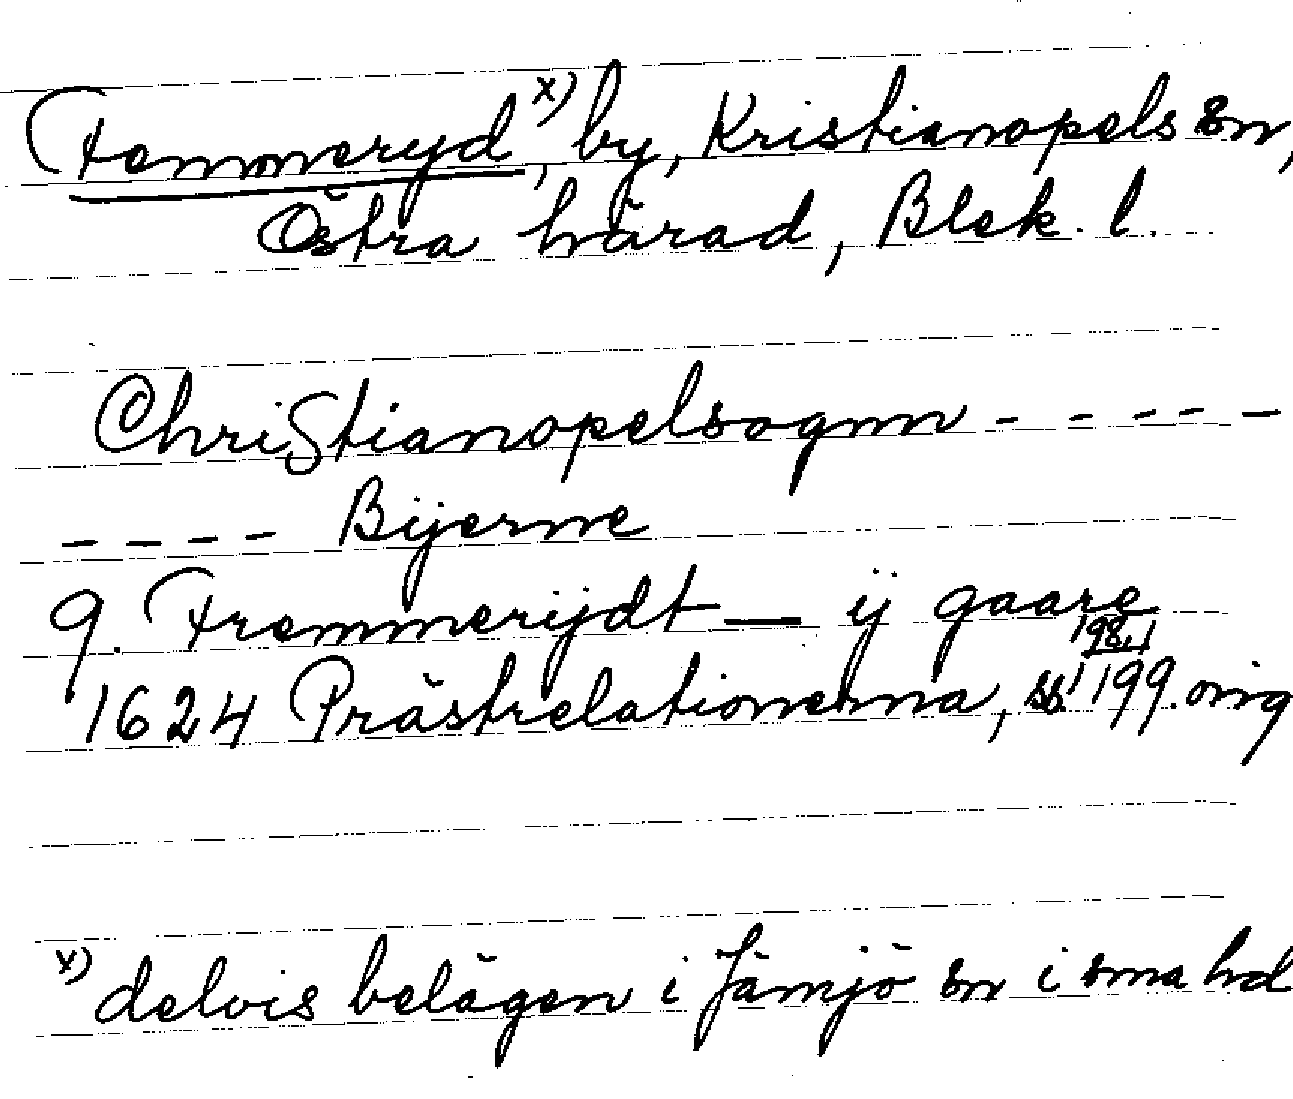 Femmeryd x), by, Kristianopels sn,
Östra härad, Blek. l.
Christianopelsognn - - - - -
- - - - Bijerne
9. Fremmerijdt — ij gaare
198,1
1624 Prästrelationerna, ss. 199. orig
x) delvis belägen i Jämjö sn i sma hd